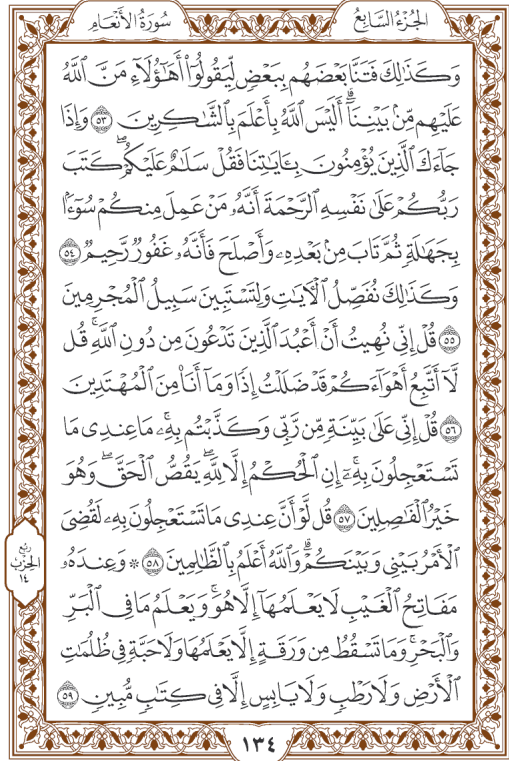 الجزء السابع
سورة الأنعام
وَكَذَٰلِكَ فَتَنَّا بَعْضَهُم بِبَعْضٍ لِّيَقُولُوٓا۟ أَهَـٰٓؤُلَآءِ مَنَّ ٱللَّهُ
عَلَيْهِم مِّنۢ بَيْنِنَآ ۗ أَلَيْسَ ٱللَّهُ بِأَعْلَمَ بِٱلشَّـٰكِرِينَ ٥٣ وَإِذَا
جَآءَكَ ٱلَّذِينَ يُؤْمِنُونَ بِـَٔايَـٰتِنَا فَقُلْ سَلَـٰمٌ عَلَيْكُمْ ۖ كَتَبَ
رَبُّكُمْ عَلَىٰ نَفْسِهِ ٱلرَّحْمَةَ ۖ أَنَّهُۥ مَنْ عَمِلَ مِنكُمْ سُوٓءًۢا
بِجَهَـٰلَةٍ ثُمَّ تَابَ مِنۢ بَعْدِهِۦ وَأَصْلَحَ فَأَنَّهُۥ غَفُورٌ رَّحِيمٌ ٥٤
وَكَذَٰلِكَ نُفَصِّلُ ٱلْـَٔايَـٰتِ وَلِتَسْتَبِينَ سَبِيلُ ٱلْمُجْرِمِينَ
٥٥ قُلْ إِنِّى نُهِيتُ أَنْ أَعْبُدَ ٱلَّذِينَ تَدْعُونَ مِن دُونِ ٱللَّهِ ۚ قُل
لَّآ أَتَّبِعُ أَهْوَآءَكُمْ ۙ قَدْ ضَلَلْتُ إِذًا وَمَآ أَنَا۠ مِنَ ٱلْمُهْتَدِينَ
٥٦ قُلْ إِنِّى عَلَىٰ بَيِّنَةٍ مِّن رَّبِّى وَكَذَّبْتُم بِهِۦ ۚ مَا عِندِى مَا
تَسْتَعْجِلُونَ بِهِۦٓ ۚ إِنِ ٱلْحُكْمُ إِلَّا لِلَّهِ ۖ يَقُصُّ ٱلْحَقَّ ۖ وَهُوَ
خَيْرُ ٱلْفَـٰصِلِينَ ٥٧ قُل لَّوْ أَنَّ عِندِى مَا تَسْتَعْجِلُونَ بِهِۦ لَقُضِىَ
ٱلْأَمْرُ بَيْنِى وَبَيْنَكُمْ ۗ وَٱللَّهُ أَعْلَمُ بِٱلظَّـٰلِمِينَ ٥٨ ۞ وَعِندَهُۥ
مَفَاتِحُ ٱلْغَيْبِ لَا يَعْلَمُهَآ إِلَّا هُوَ ۚ وَيَعْلَمُ مَا فِى ٱلْبَرِّ
وَٱلْبَحْرِ ۚ وَمَا تَسْقُطُ مِن وَرَقَةٍ إِلَّا يَعْلَمُهَا وَلَا حَبَّةٍ فِى ظُلُمَـٰتِ
ٱلْأَرْضِ وَلَا رَطْبٍ وَلَا يَابِسٍ إِلَّا فِى كِتَـٰبٍ مُّبِينٍ ٥٩
ربع
الحزب
١٤
١٣٤